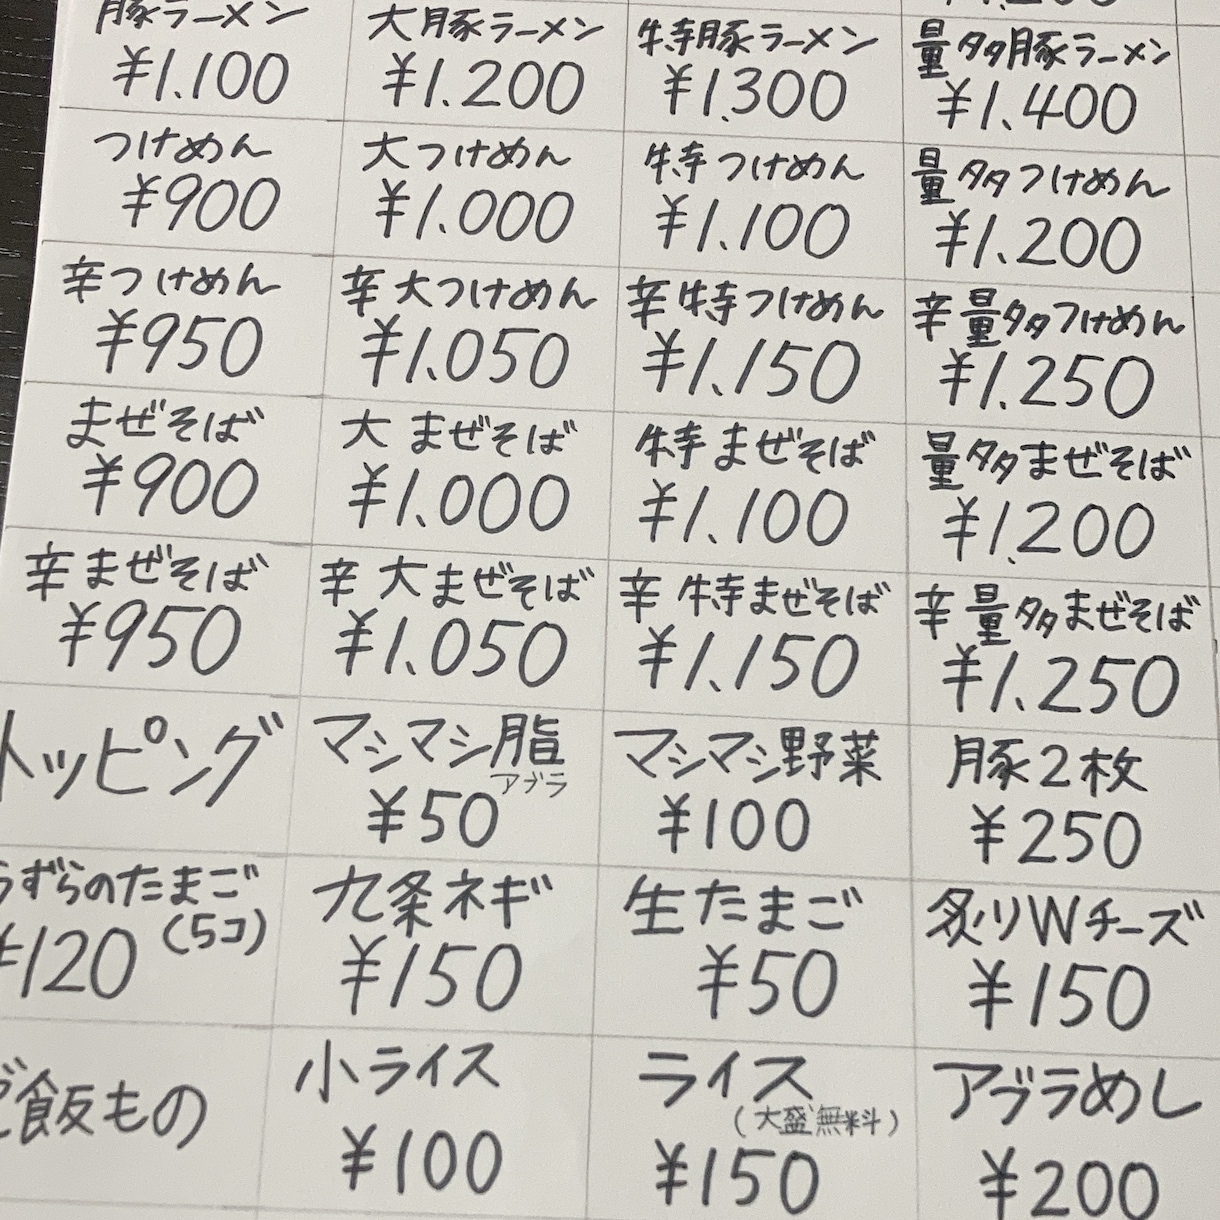 ¥1.200
豚ラーメン
¥1.100
大豚ラーメン
¥1.200
特豚ラーメン
¥1.300
量多豚ラーメン
¥1.400
つけめん
¥900
大つけめん
¥1.000
特つけめん
¥1.100
量多つけめん
¥1.200
辛つけめん
¥950
辛大つけめん
¥1.050
辛特つけめん
¥1.150
辛量多つけめん
¥1.250
まぜそば
¥900
大まぜそば
¥1.000
特まぜそば
¥1.100
量多まぜそば
¥1.200
辛まぜそば
¥950
辛大まぜそば
¥1.050
辛特まぜそば
¥1.150
辛量多まぜそば
¥1.250
トッピング
マシマシ脂
アブラ
¥50
マシマシ野菜
¥100
豚2枚
¥250
うずらのたまご
¥120(5コ)
九条ネギ
¥150
生たまご
¥50
炙りWチーズ
¥150
ご飯もの
小ライス
¥100
ライス
(大盛無料)
¥150
アブラめし
¥200